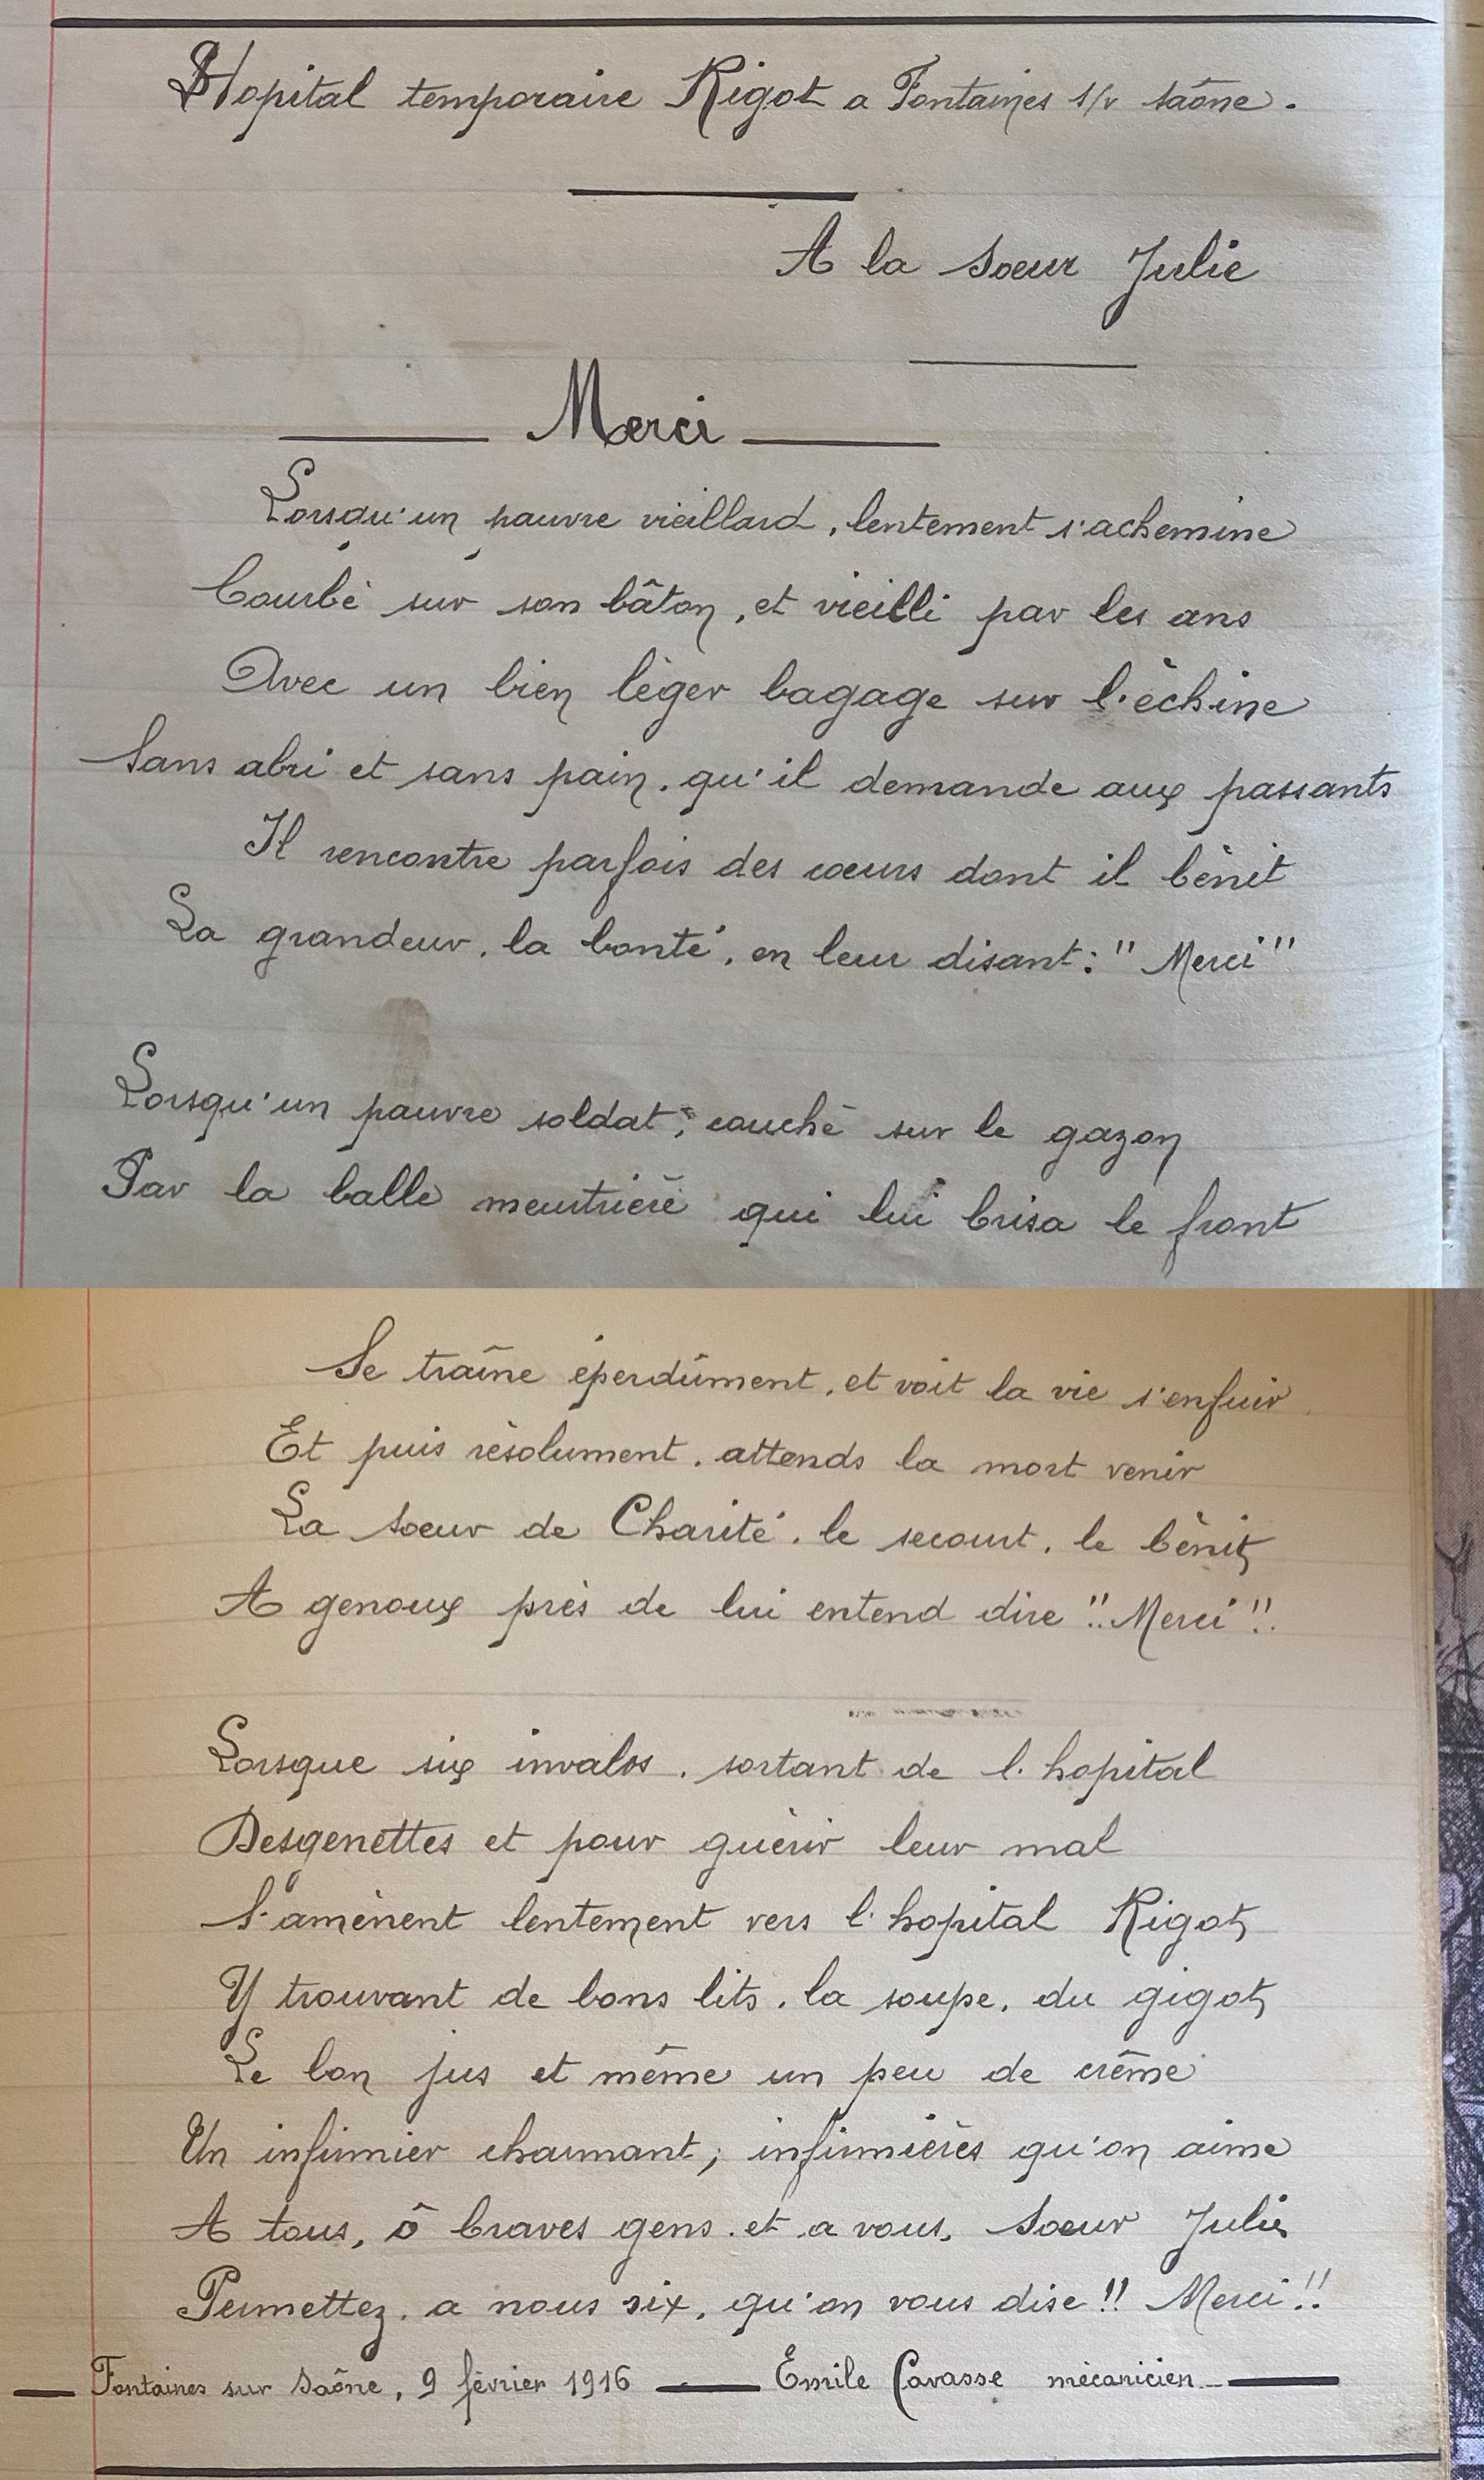 Hopital temporaire Rigot a Fontaines s/r saône.
A la soeur Julie
Merci
Lorsqu'un pauvre vieillard, lentement s'achemine
Courbé sur son bâton, et vieilli par les ans
Avec un bien léger bagage sur l'échine
Sans abri et sans pain, qu'il demande aux passants
Il rencontre parfois des coeurs dont il bénit
La grandeur, la bonté, en leur disant: "Merci"
Lorsqu'un pauvre soldat, couché sur le gazon
Par la balle meurtrière qui lui brisa le front
Se traîne éperdûment, et voit la vie s'enfuir
Et puis résolument, attends la mort venir
La soeur de Charité, le secourt, le bénit
A genoux près de lui entend dire "Merci"!
Lorsque six invalos, sortant de l'hopital
Desgenettes et pour guérir leur mal
S'amènent lentement vers l'hopital Rigot
Y trouvant de bons lits, la soupe, du gigot
Le bon jus et même un peu de crème
Un infirmier charmant, infirmières qu'on aime
A tous, ô braves gens et a vous, Soeur Julie
Permettez, a nous six, qu'on vous dise!! Merci!!
Fontaines sur Saône, 9 février 1916 — Emile Cavasse mécanicien